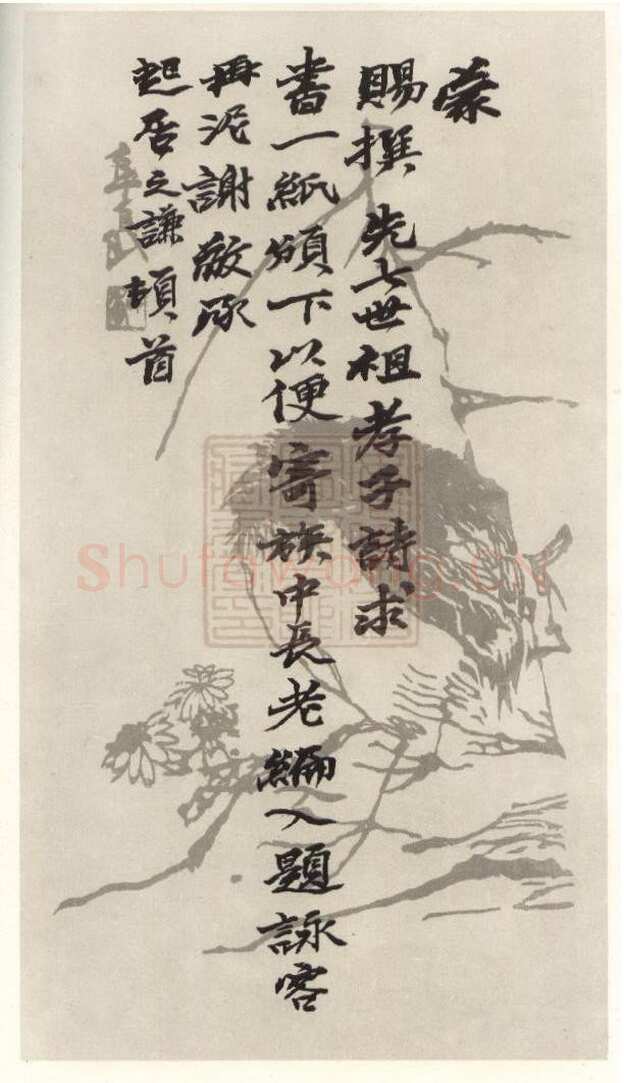 蒙
賜撰先七世祖孝子詩求
書一紙頒下以便寄族中長老編入題詠容
再泥謝敬承
起居之謙頓首
Shufawang.CN